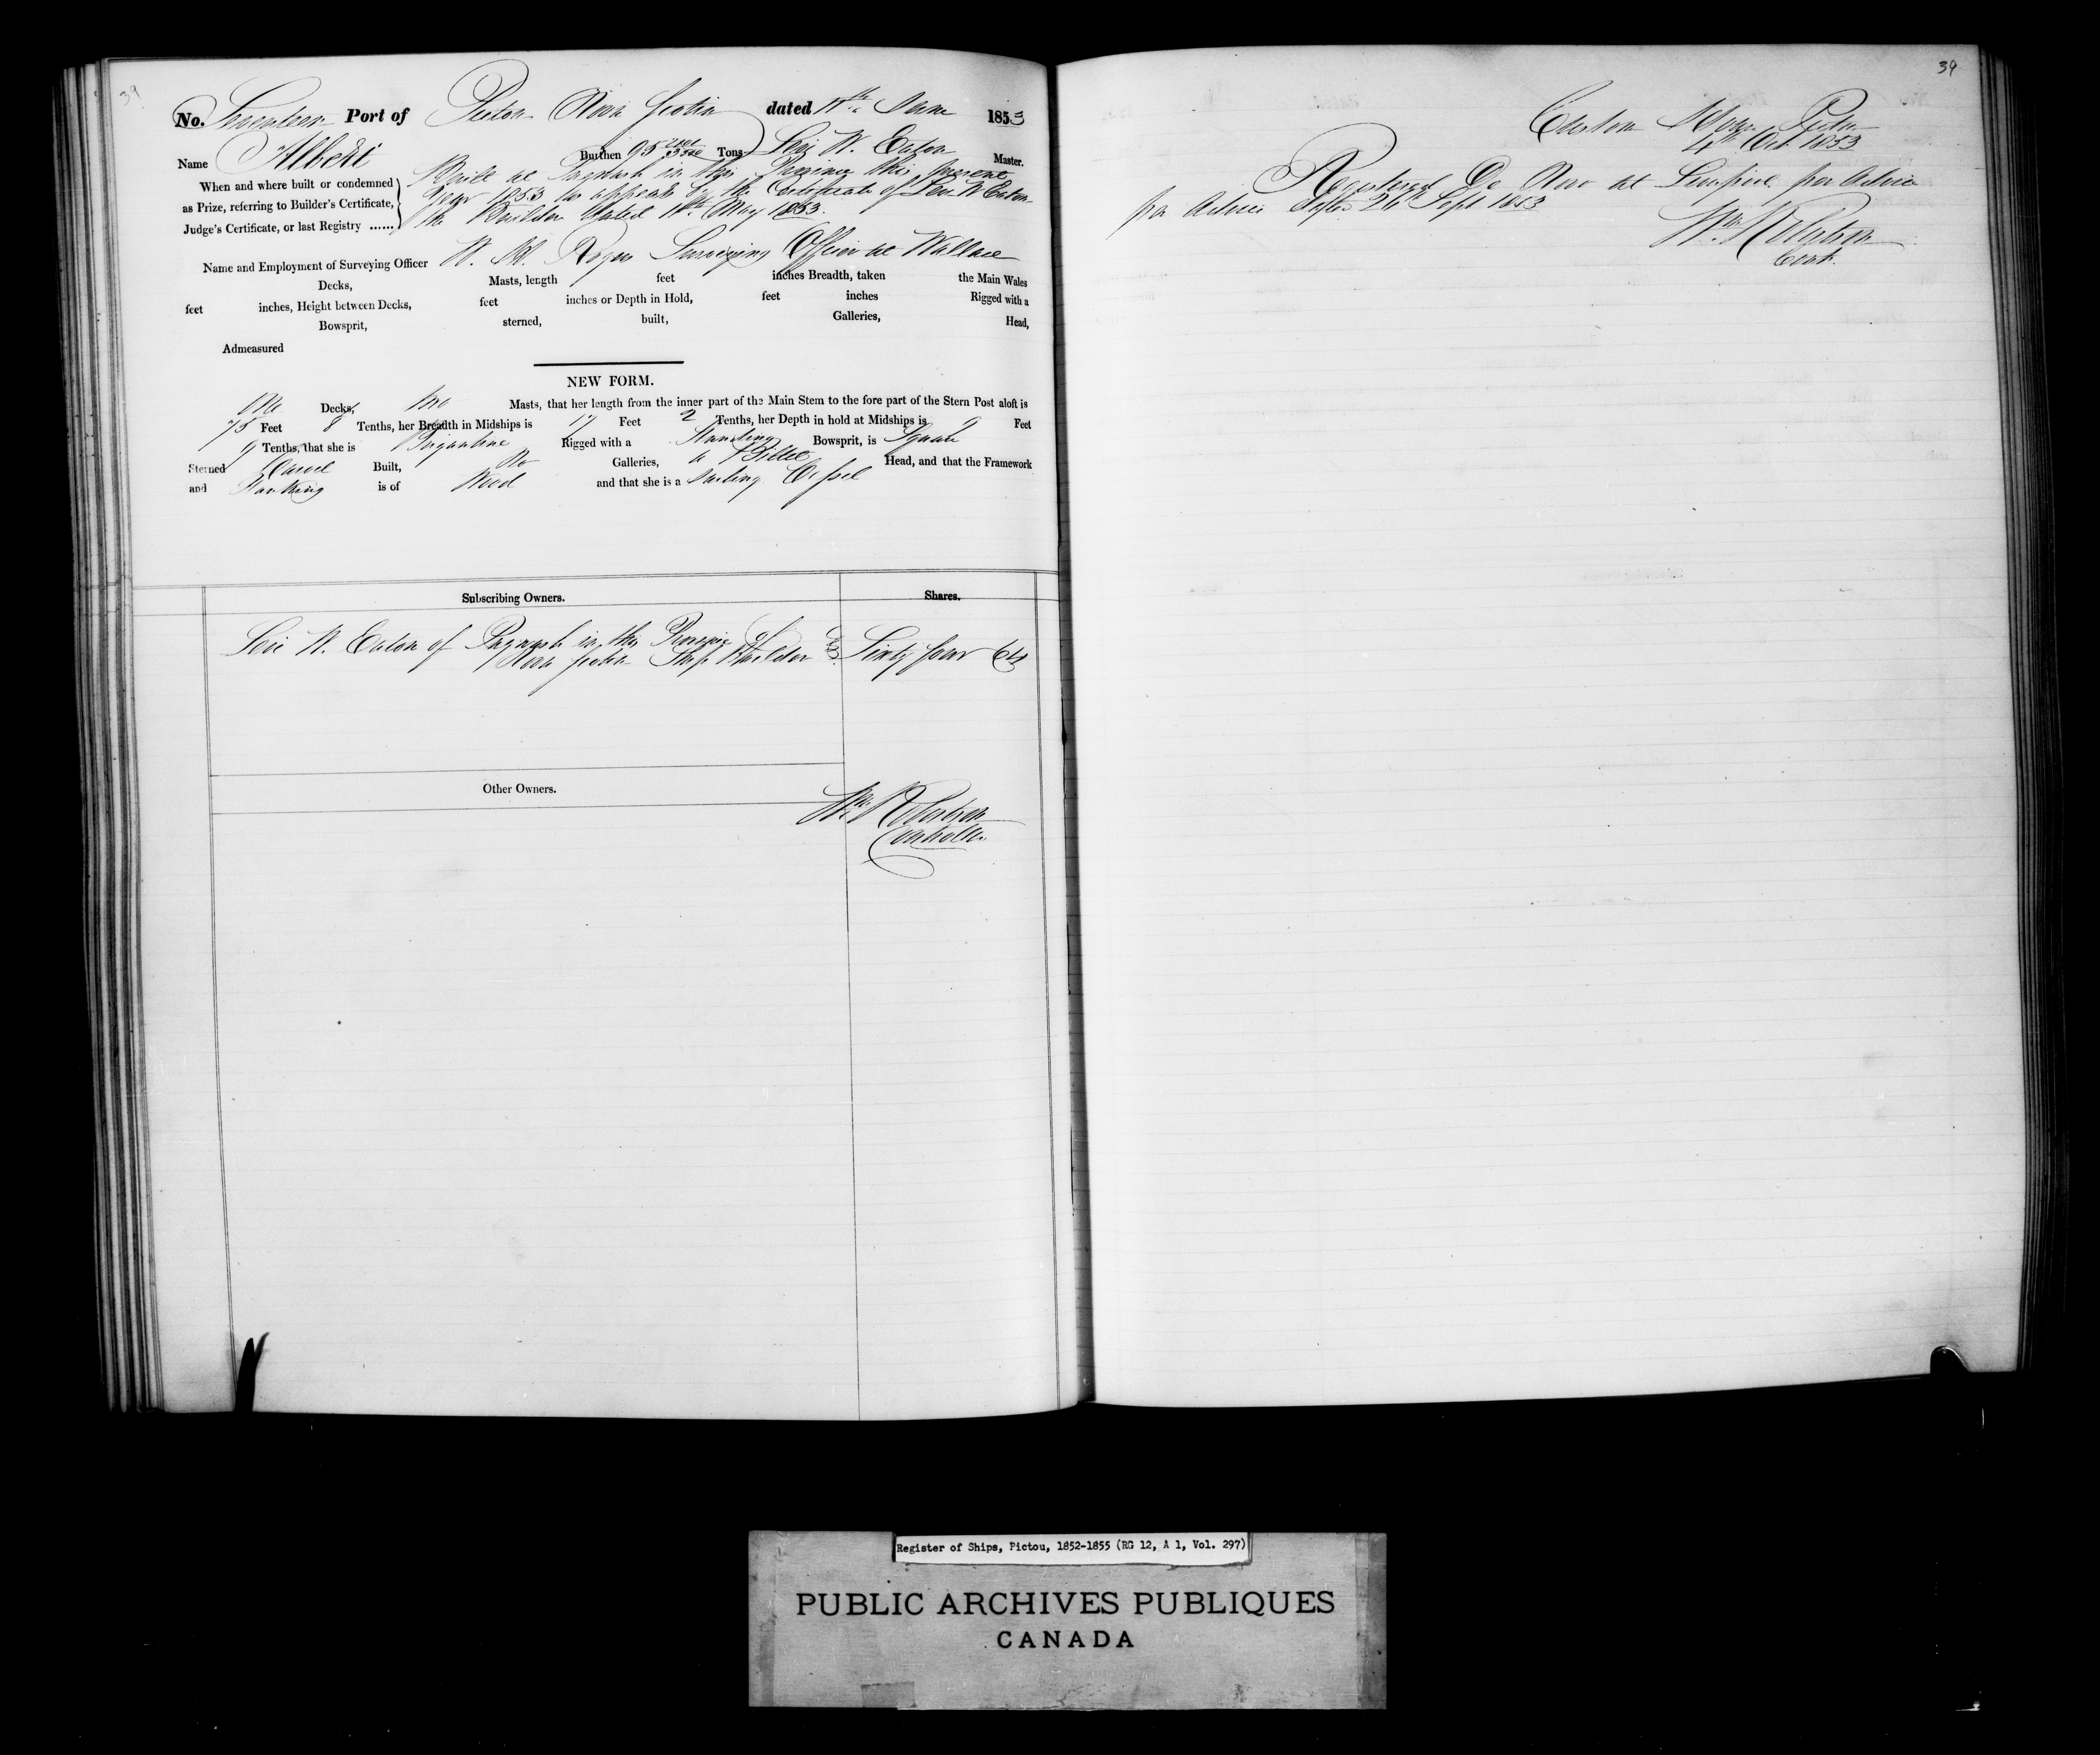 39
No. Seventeen Port of Pictou Nova Scotia dated 11th June 1853
Name Albert Burthen 95 Tons Levi W. Eaton Master.
When and where built or condemned
as Prize, referring to Builder's Certificate,
Judge's Certificate, or last Registry ......
Built at Pugwash in this Province this present
Year 1853 as appears by the Certificate of Levi W Eaton
the Builder dated May 1853.
Name and Employment of Surveying Officer W. Rogers Surveying Officer at Wallace
Decks, Masts, length feet inches Breadth, taken the Main Wales
feet inches, Height between Decks, feet inches or Depth in Hold, feet inches Rigged with a
Bowsprit, sterned, built, Galleries, Head,
Admeasured
NEW FORM.
One Decks, two Masts, that her length from the inner part of the Main Stem to the fore part of the Stern Post aloft is
75 Feet 8 Tenths, her Breadth in Midships is 17 Feet 2 Tenths, her Depth in hold at Midships is 9 Feet
9 Tenths, that she is Brigantine Rigged with a Standing Bowsprit, is Square
Sterned Carvel Built, No Galleries, a Billet Head, and that the Framework
and Planking is of Wood and that she is a Sailing Vessel
Subscribing Owners. Shares.
Levi W. Eaton of Pugwash in the Province of
Nova Scotia Ship Builder Sixty four 64
Other Owners.
Wm Robertson
Controller
39
Custom House Pictou
4th Oct. 1853
Registered De Novo at Liverpool per Advice
per Advice 26th Sept 1853
Wm Robertson
Contr.
Register of Ships, Pictou, 1852-1855 (RG 12, A 1, Vol. 297)
PUBLIC ARCHIVES PUBLIQUES
CANADA